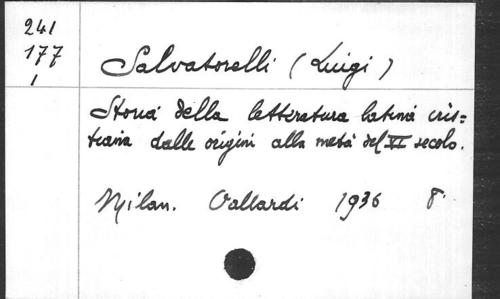 241
177
1
Salvatorelli (Luigi)
Storia della letteratura latina cris=
tiana dalle origini alla metà del VI secolo.
Milan. Vallardi 1936 8°